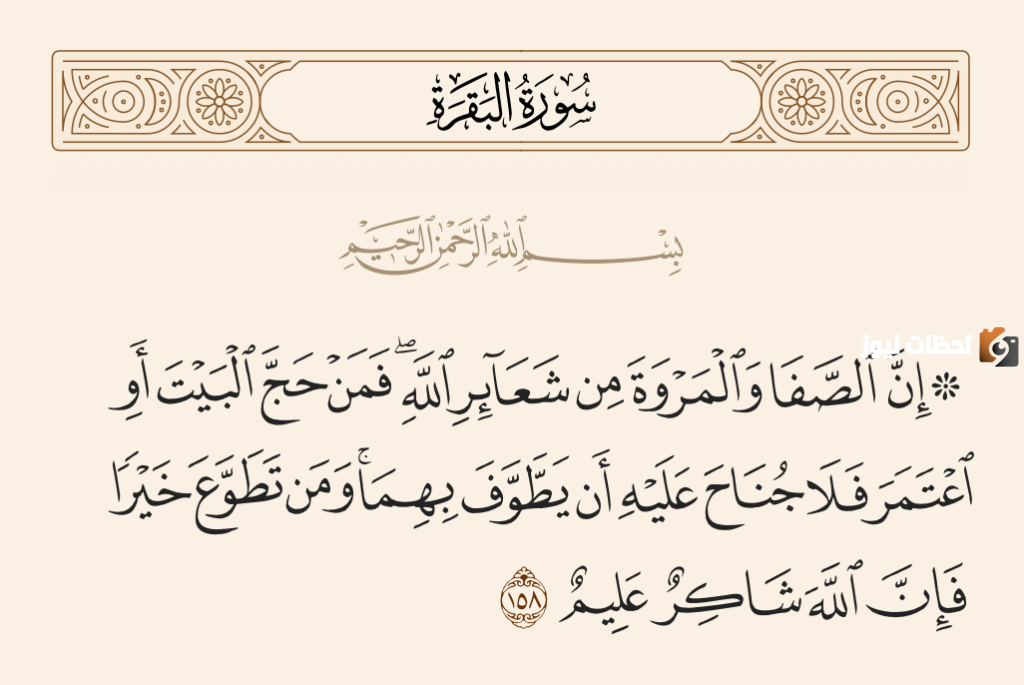 سُورَةُ البَقَرَةِ
بِسْمِ ٱللَّهِ ٱلرَّحْمَٰنِ ٱلرَّحِيمِ
لحظات نيوز
۞ إِنَّ ٱلصَّفَا وَٱلْمَرْوَةَ مِن شَعَآئِرِ ٱللَّهِۖ فَمَنْ حَجَّ ٱلْبَيْتَ أَوِ
ٱعْتَمَرَ فَلَا جُنَاحَ عَلَيْهِ أَن يَطَّوَّفَ بِهِمَاۚ وَمَن تَطَوَّعَ خَيْرًا
فَإِنَّ ٱللَّهَ شَاكِرٌ عَلِيمٌ ١٥٨